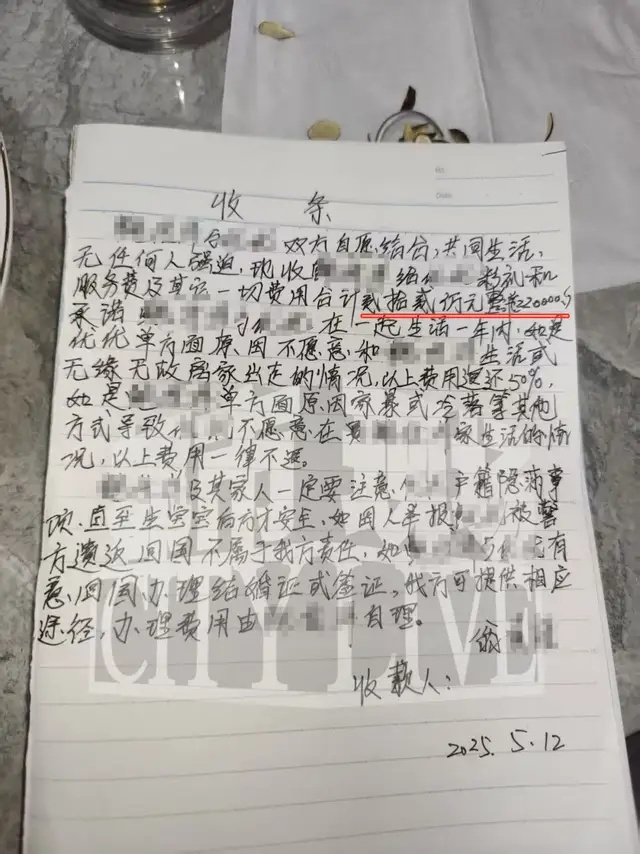 收 条
双方自愿结合,共同生活,
无任何人强迫,现收 给 彩礼和
服务费及其它一切费用合计贰拾贰万元整 220000
承诺 在一起生活一年内,如是
优优单方面原因不愿意和 生活或
无缘无故离家出走的情况,以上费用退还50%,
如是 单方面原因家暴或冷落等其他
方式导致 不愿意在 家生活的情
况,以上费用一律不退。
及其家人一定要注意, 户籍隐满事
项,直至生宝宝后方才安全,如因人举报 被警
方遣送回国不属于我方责任,如 有
意,回国办理结婚证或签证,我方可提供相应
途径,办理费用由 自理。
收款人:
2025.5.12
No:
Date:
CITY LIVE